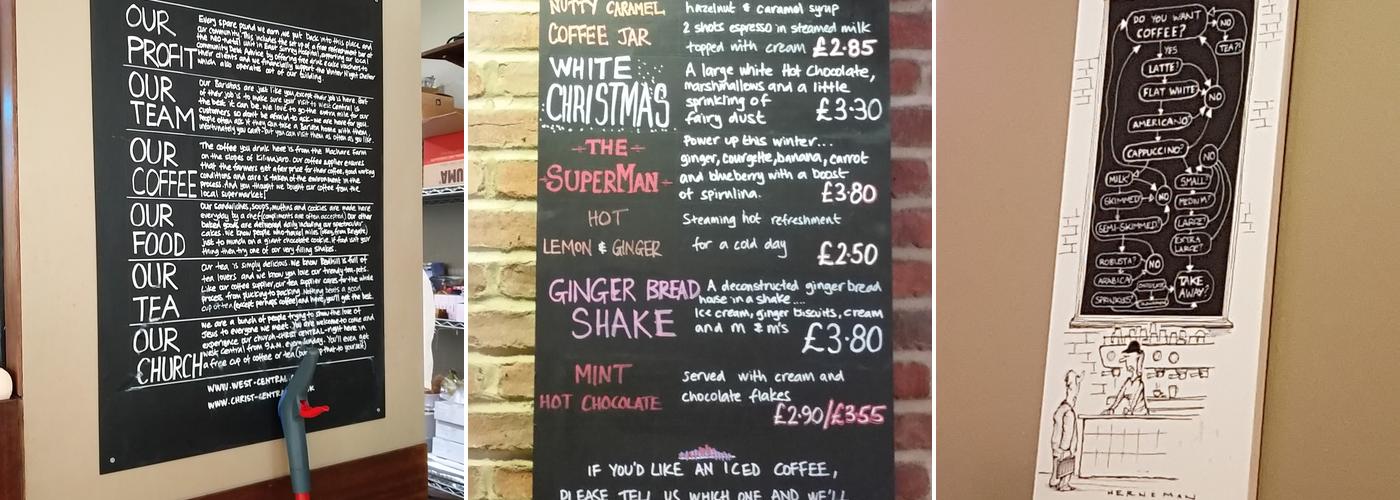 OUR
PROFIT
Every spare pound we earn we put back into this place and
our community. This includes the set up of a free refreshment bar at
the neo-natal unit in East Surrey Hospital, supporting our local
community Debt Advice by offering free drink & cake vouchers to
their clients and we financially support the Winter Night Shelter
which also operates out of our building.
OUR
TEAM
Our Baristas are just like you, except their job is here. Part
of their job is to make sure your visit to West Central is
the best it can be. We love to go the extra mile for our
customers so don't be afraid to ask - we are here for you.
People often ask if they can take a Barista home with them,
unfortunately you can't - but you can visit them as often as you like.
OUR
COFFEE
The coffee you drink here is from the Machare Farm
on the slopes of Kilimanjaro. Our coffee supplier ensures
that the farmers get a fair price for their coffee, good working
conditions and care is taken of the environment in the
process. And you thought we bought our coffee from the
local supermarket!
OUR
FOOD
Our sandwiches, soups, muffins and cookies are made here
everyday by a chef (compliments are often accepted) Our other
baked goods are delivered daily including our spectacular
cakes. We know people who travel miles (okay, from Reigate)
just to munch on a giant chocolate cookie. If food isn't your
thing then try one of our very filling shakes.
OUR
TEA
Our tea is simply delicious. We know Redhill is full of
tea lovers and we know you love our trendy tea-pots.
Like our coffee supplier, our tea supplier cares for the whole
process from plucking to packing. Nothing beats a good
cup of tea (except perhaps coffee) and here, you'll get the best.
OUR
CHURCH
We are a bunch of people trying to show the love of
Jesus to everyone we meet. You are welcome to come and
experience our church - CHRIST CENTRAL - right here in
West Central from 9 A.M. every Sunday. You'll even get
a free cup of coffee or tea that to yourself)
WWW.WEST-CENTRAL
WWW.CHRIST-CENTRAL
PUMA
NUTTY CARAMEL
COFFEE JAR
hazelnut & caramel syrup
2 shots espresso in steamed milk
topped with cream £2·85
WHITE
CHRISTMAS
A large white Hot Chocolate,
marshmallows and a little
sprinkling of
fairy dust £3·30
THE
SUPERMAN
Power up this winter...
ginger, courgette, banana, carrot
and blueberry with a boost
of spirulina. £3·80
HOT
LEMON & GINGER
Steaming hot refreshment
for a cold day £2·50
GINGER BREAD
SHAKE
A deconstructed ginger bread
house in a shake....
Ice cream, ginger biscuits, cream
and m & m's £3·80
MINT
HOT CHOCOLATE
served with cream and
chocolate flakes
£2·90/£3·55
IF YOU'D LIKE AN ICED COFFEE,
PLEASE TELL US WHICH ONE AND WE'LL
DO YOU WANT
COFFEE?
NO
TEA?
YES
LATTE?
FLAT WHITE?
NO
AMERICANO?
CAPPUCCINO?
NO
MILK?
SKIMMED?
NO
SEMI-SKIMMED?
SMALL?
MEDIUM?
LARGE?
EXTRA
LARGE?
ROBUSTA?
NO
ARABICA?
SPRINKLES?
TAKE
AWAY?
HERNEMAN